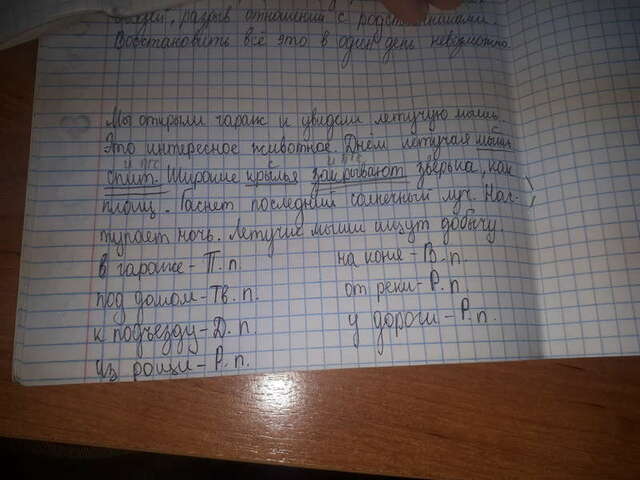 разрыв отношений с родственниками.
Восстановить всё это в один день невозможно.
Мы открыли гараж и увидели летучую мышь.
Это интересное животное. Днём летучая мышь
спит. Широкие крылья закрывают зверька, как
плащ. Гаснет последний солнечный луч. Нас-
тупает ночь. Летучие мыши ищут добычу.
в гараже - П. п. на коне - В. п.
под домом - Тв. п. от реки - Р. п.
к подъезду - Д. п. у дороги - Р. п.
из рощи - Р. п.